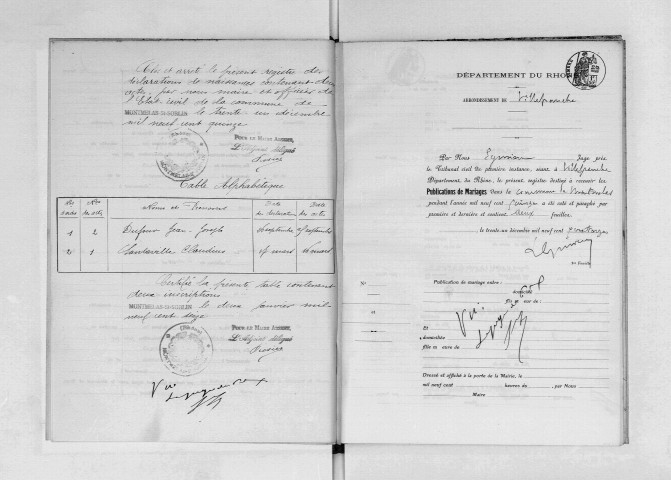 Clos et arrêté le présent registre des
déclarations de naissances contenant deux
actes, par nous maire et officier de
l'Etat civil de la commune de
MONTMELAS-St-SORLIN le trente un décembre
mil neuf cent quinze
POUR LE MAIRE ABSENT,
L'Adjoint délégué
Table Alphabétique
Nos
Nos des actes
Noms et Prénoms
Date
de déclaration
Date
des actes
1 2 Dufour Jean Joseph 16 septembre septembre
2 1 Claudius 17 mars 16 mars
Certifié la présente table contenant
deux inscriptions
MONTMELAS-St-SORLIN le deux janvier mil
neuf cent seize
POUR LE MAIRE ABSENT,
L'Adjoint délégué
Vu
DÉPARTEMENT DU RHÔNE
ARRONDISSEMENT DE Villefranche
Par Nous Juge près
le Tribunal civil de première instance, séant à Villefranche
Département du Rhône, le présent registre destiné à recevoir les
Publications de Mariages dans la commune de Montmelas
pendant l'année mil neuf cent quinze a été coté et paraphé par
première et dernière et contient deux feuilles.
le trente un décembre mil neuf cent quatorze
Nº
Publication de mariage entre :
domicilié
fils de
Vu :
Et
domiciliée
fille de
Dressé et affiché à la porte de la Mairie, le
mil neuf cent heures du , par Nous
Maire